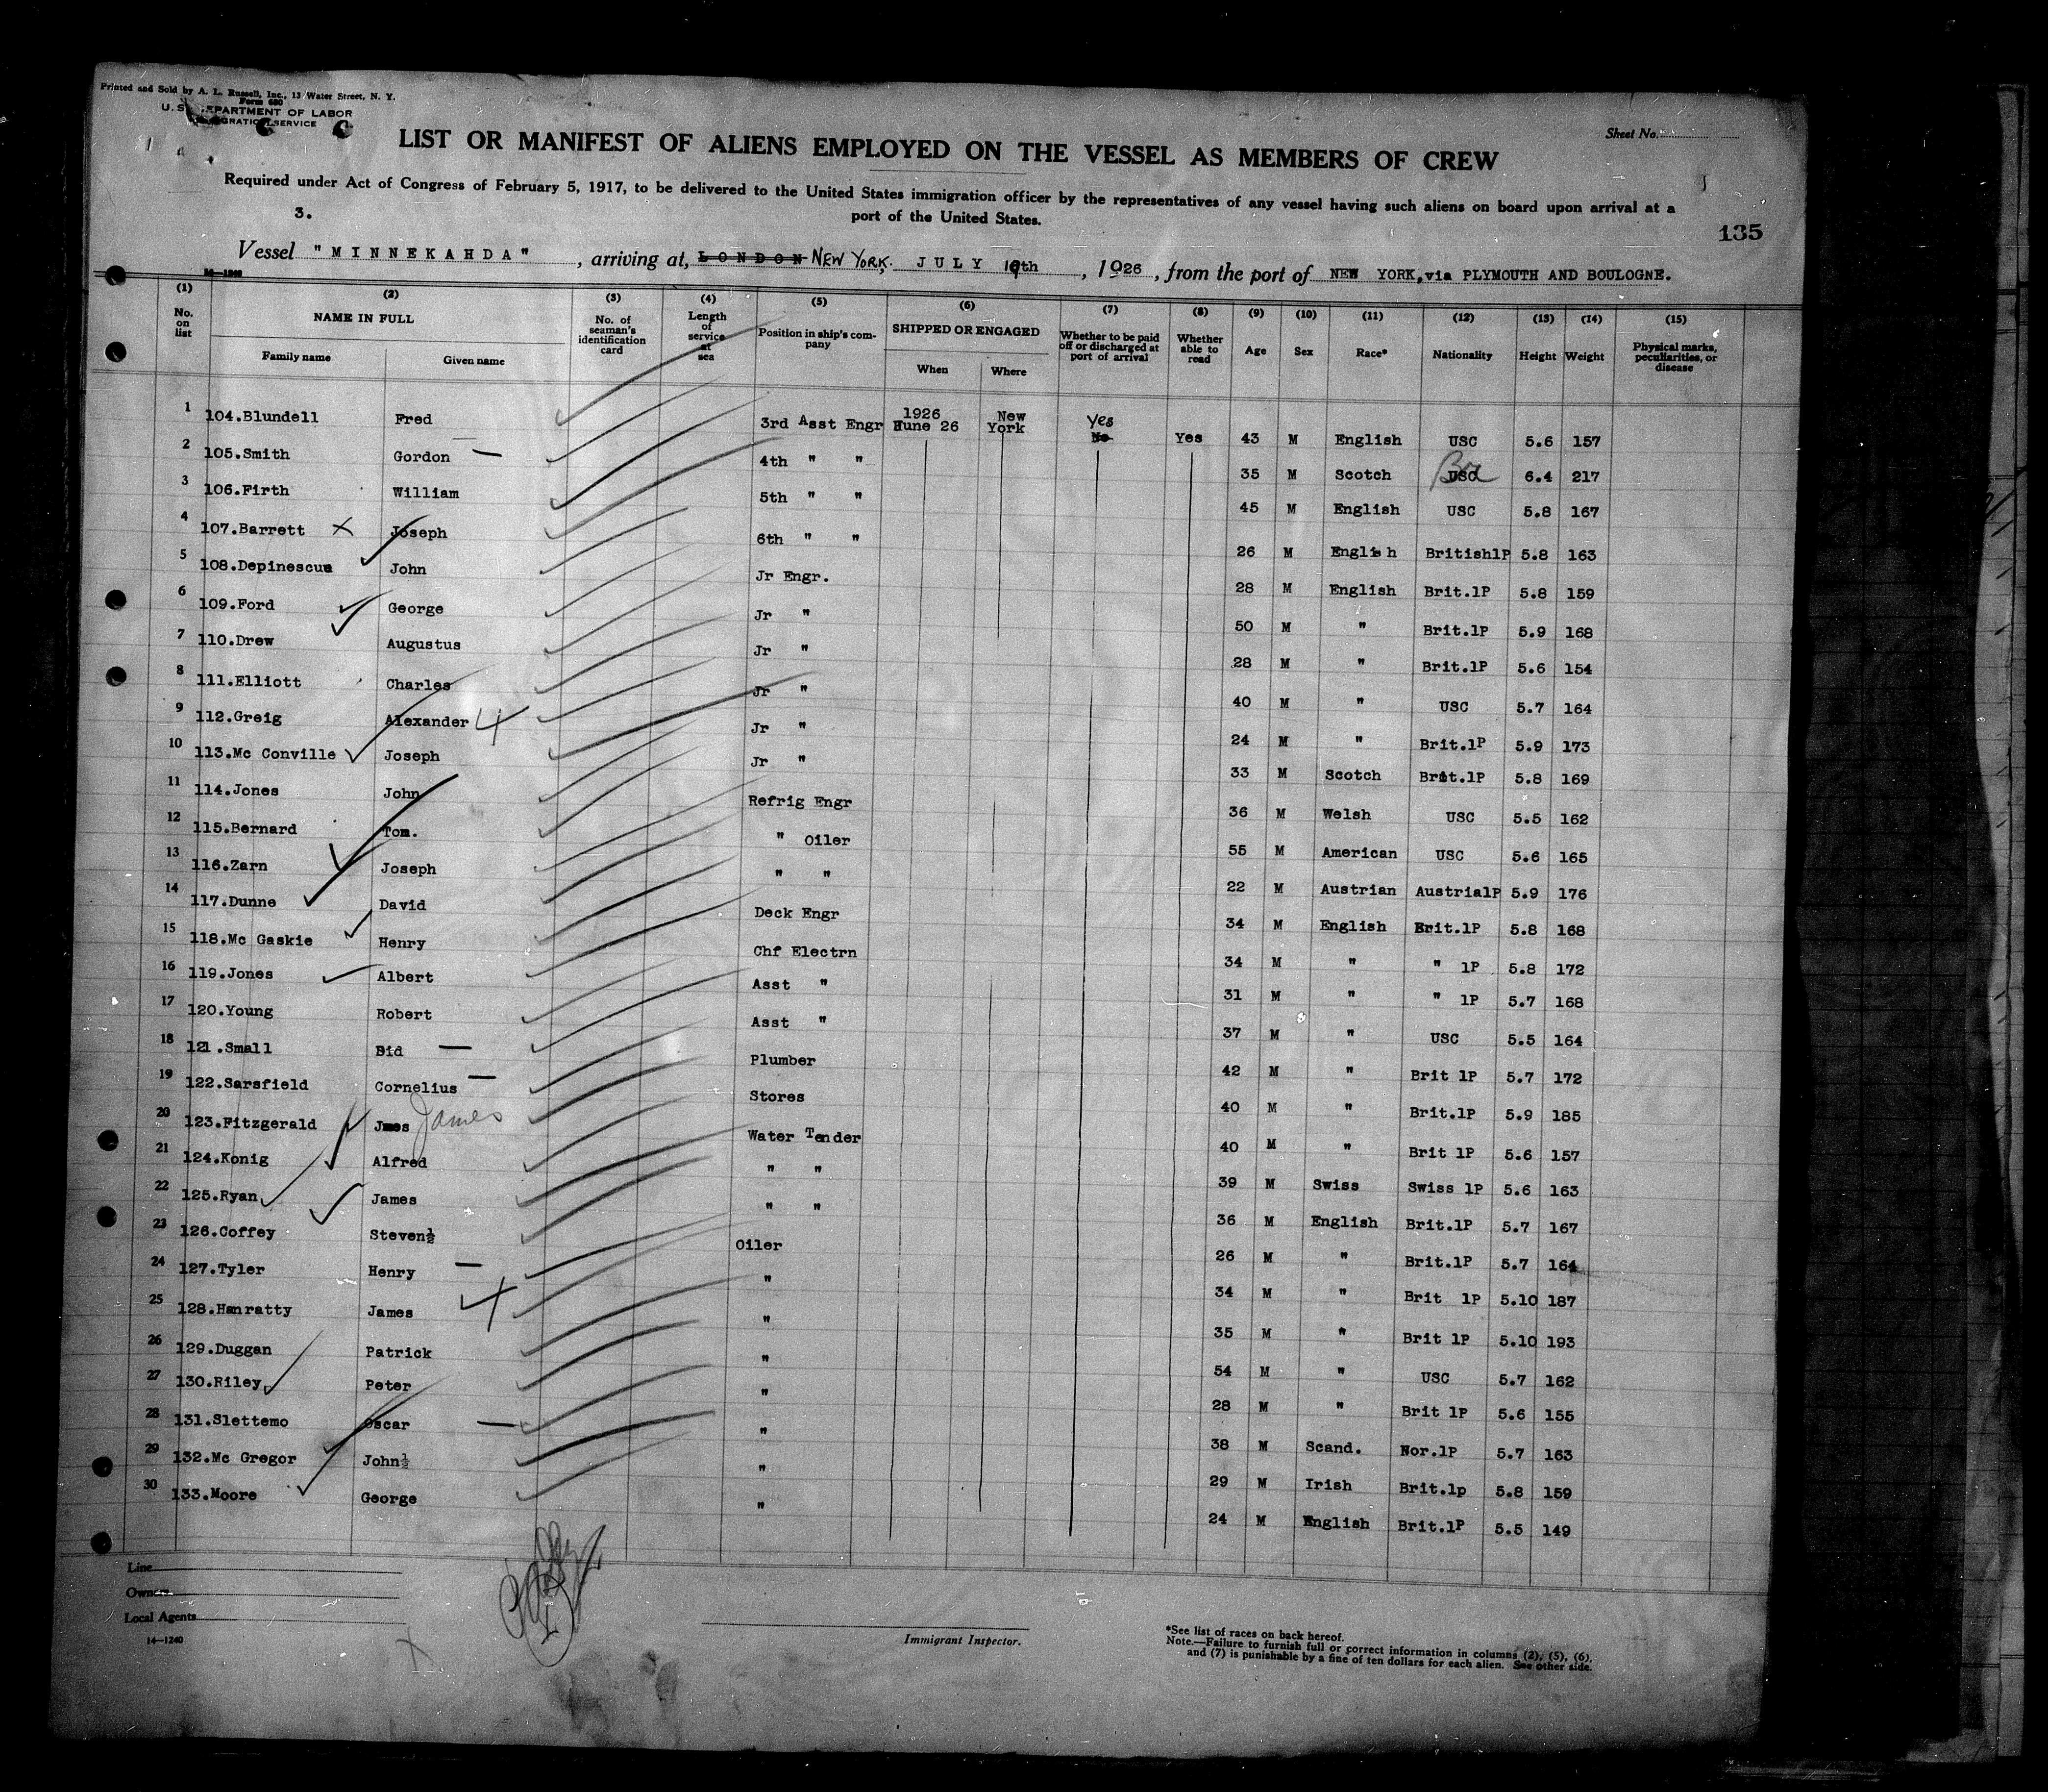 Printed and Sold by A. L. Russell, Inc., 13 Water Street, N. Y.
Form 680
U. S. DEPARTMENT OF LABOR
IMMIGRATION SERVICE
Sheet No.
LIST OR MANIFEST OF ALIENS EMPLOYED ON THE VESSEL AS MEMBERS OF CREW
Required under Act of Congress of February 5, 1917, to be delivered to the United States immigration officer by the representatives of any vessel having such aliens on board upon arrival at a
port of the United States.
3.
135
Vessel "MINNEKAHDA", arriving at, LONDON NEW YORK, JULY 19th, 1926, from the port of NEW YORK, via PLYMOUTH AND BOULOGNE.
14-1240
(1) (2) (3) (4) (5) (6) (7) (8) (9) (10) (11) (12) (13) (14) (15)
No. on list NAME IN FULL Family name Given name No. of seaman's identification card Length of service at sea Position in ship's company SHIPPED OR ENGAGED When Where Whether to be paid off or discharged at port of arrival Whether able to read Age Sex Race* Nationality Height Weight Physical marks, peculiarities, or disease
1 104.Blundell Fred 3rd Asst Engr 1926 June 26 New York Yes No Yes 43 M English USC 5.6 157
2 105.Smith Gordon 4th " " 35 M Scotch USC 6.4 217
3 106.Firth William 5th " " 45 M English USC 5.8 167
4 107.Barrett X Joseph 6th " " 26 M English British1P 5.8 163
5 108.Depinescua John Jr Engr. 28 M English Brit.1P 5.8 159
6 109.Ford George Jr " 50 M " Brit.1P 5.9 168
7 110.Drew Augustus Jr " 28 M " Brit.1P 5.6 154
8 111.Elliott Charles Jr " 40 M " USC 5.7 164
9 112.Greig Alexander Jr " 24 M " Brit.1P 5.9 173
10 113.Mc Conville Joseph Jr " 33 M Scotch Brit.1P 5.8 169
11 114.Jones John Refrig Engr 36 M Welsh USC 5.5 162
12 115.Bernard Tom. " Oiler 55 M American USC 5.6 165
13 116.Zarn Joseph " " 22 M Austrian Austria1P 5.9 176
14 117.Dunne David Deck Engr 34 M English Brit.1P 5.8 168
15 118.Mc Gaskie Henry Chf Electrn 34 M " " 1P 5.8 172
16 119.Jones Albert Asst " 31 M " " 1P 5.7 168
17 120.Young Robert Asst " 37 M " USC 5.5 164
18 121.Small Sid Plumber 42 M " Brit 1P 5.7 172
19 122.Sarsfield Cornelius Stores 40 M " Brit.1P 5.9 185
20 123.Fitzgerald Jmes James Water Tender 40 M " Brit 1P 5.6 157
21 124.Konig Alfred " " 39 M Swiss Swiss 1P 5.6 163
22 125.Ryan James " " 36 M English Brit.1P 5.7 167
23 126.Coffey Steven½ Oiler 26 M " Brit.1P 5.7 164
24 127.Tyler Henry " 34 M " Brit 1P 5.10 187
25 128.Hanratty James " 35 M " Brit 1P 5.10 193
26 129.Duggan Patrick " 54 M " USC 5.7 162
27 130.Riley Peter " 28 M " Brit 1P 5.6 155
28 131.Slettemo Oscar " 38 M Scand. Nor.1P 5.7 163
29 132.Mc Gregor John½ " 29 M Irish Brit.1p 5.8 159
30 133.Moore George " 24 M English Brit.1P 5.5 149
Line
Owners
Local Agents
14—1240
Immigrant Inspector.
*See list of races on back hereof.
Note.—Failure to furnish full or correct information in columns (2), (5), (6),
and (7) is punishable by a fine of ten dollars for each alien. See other side.